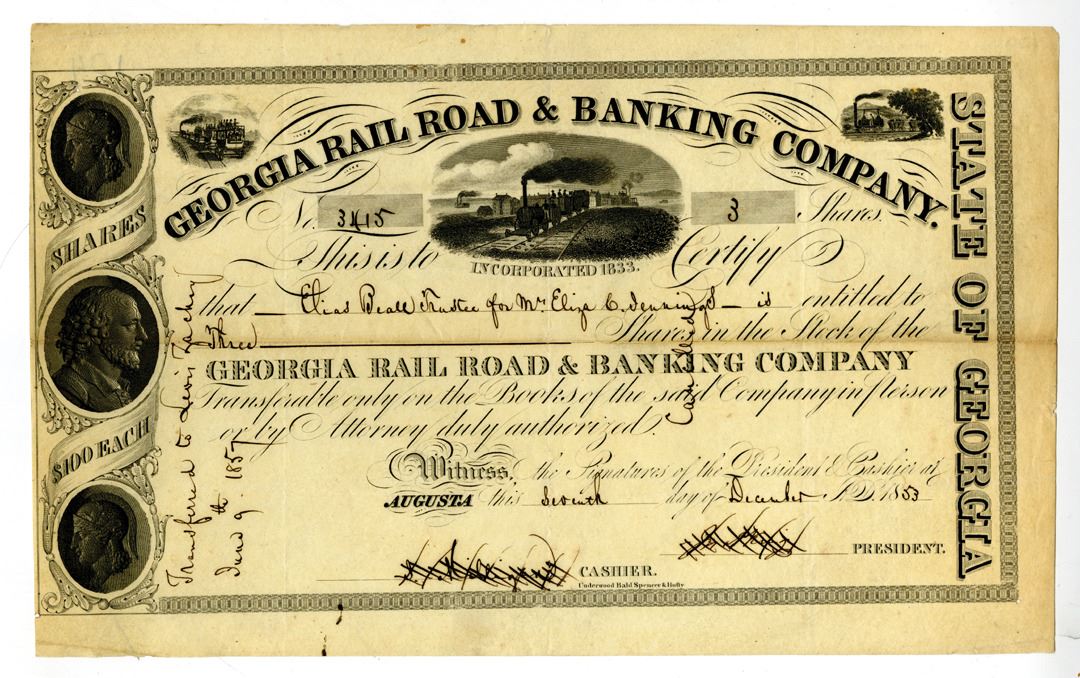 GEORGIA RAIL ROAD & BANKING COMPANY.
STATE OF GEORGIA
SHARES
$100 EACH
No. 3415
3 Shares.
INCORPORATED 1833.
This is to Certify
that Elias Beall Trustee for Mrs Eliza C. Jennings is entitled to
Three Shares in the Stock of the
GEORGIA RAIL ROAD & BANKING COMPANY
Transferable only on the Books of the said Company in person
or by Attorney duly authorized.
Witness, the Signatures of the President & Cashier at
AUGUSTA this Seventh day of December A.D. 1853
PRESIDENT.
CASHIER.
Underwood Bald Spencer & Hufty
Transferred to Lewis Zachry
June 9th 1857
Cancelled